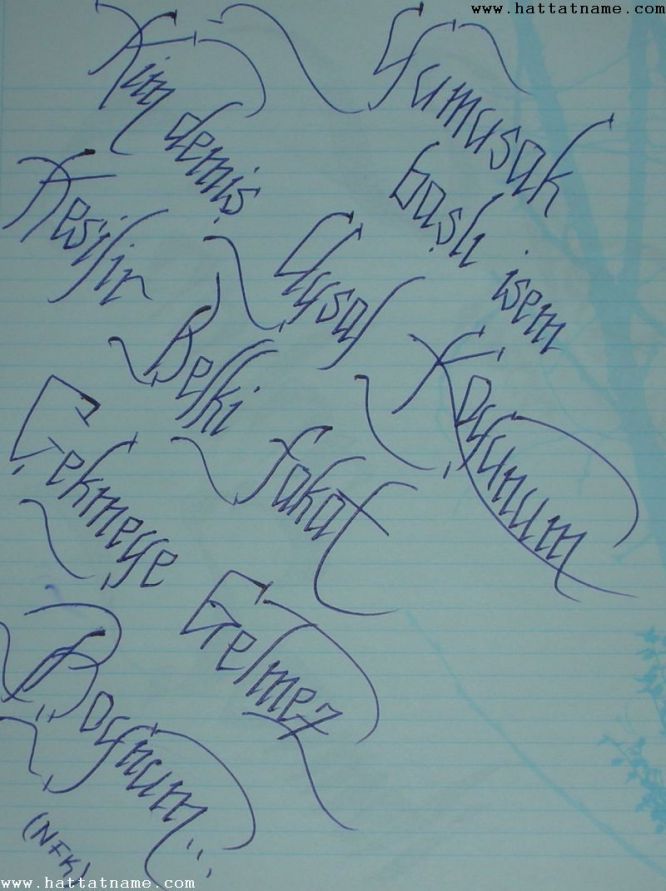 www.hattatname.com
Yumusak
başlı isem
Kim demiş
Uysal
Koyunum
Kesilir
Belki
Fakat
Çekmeye
Gelmez
Boynum...
(NFK)
www.hattatname.com